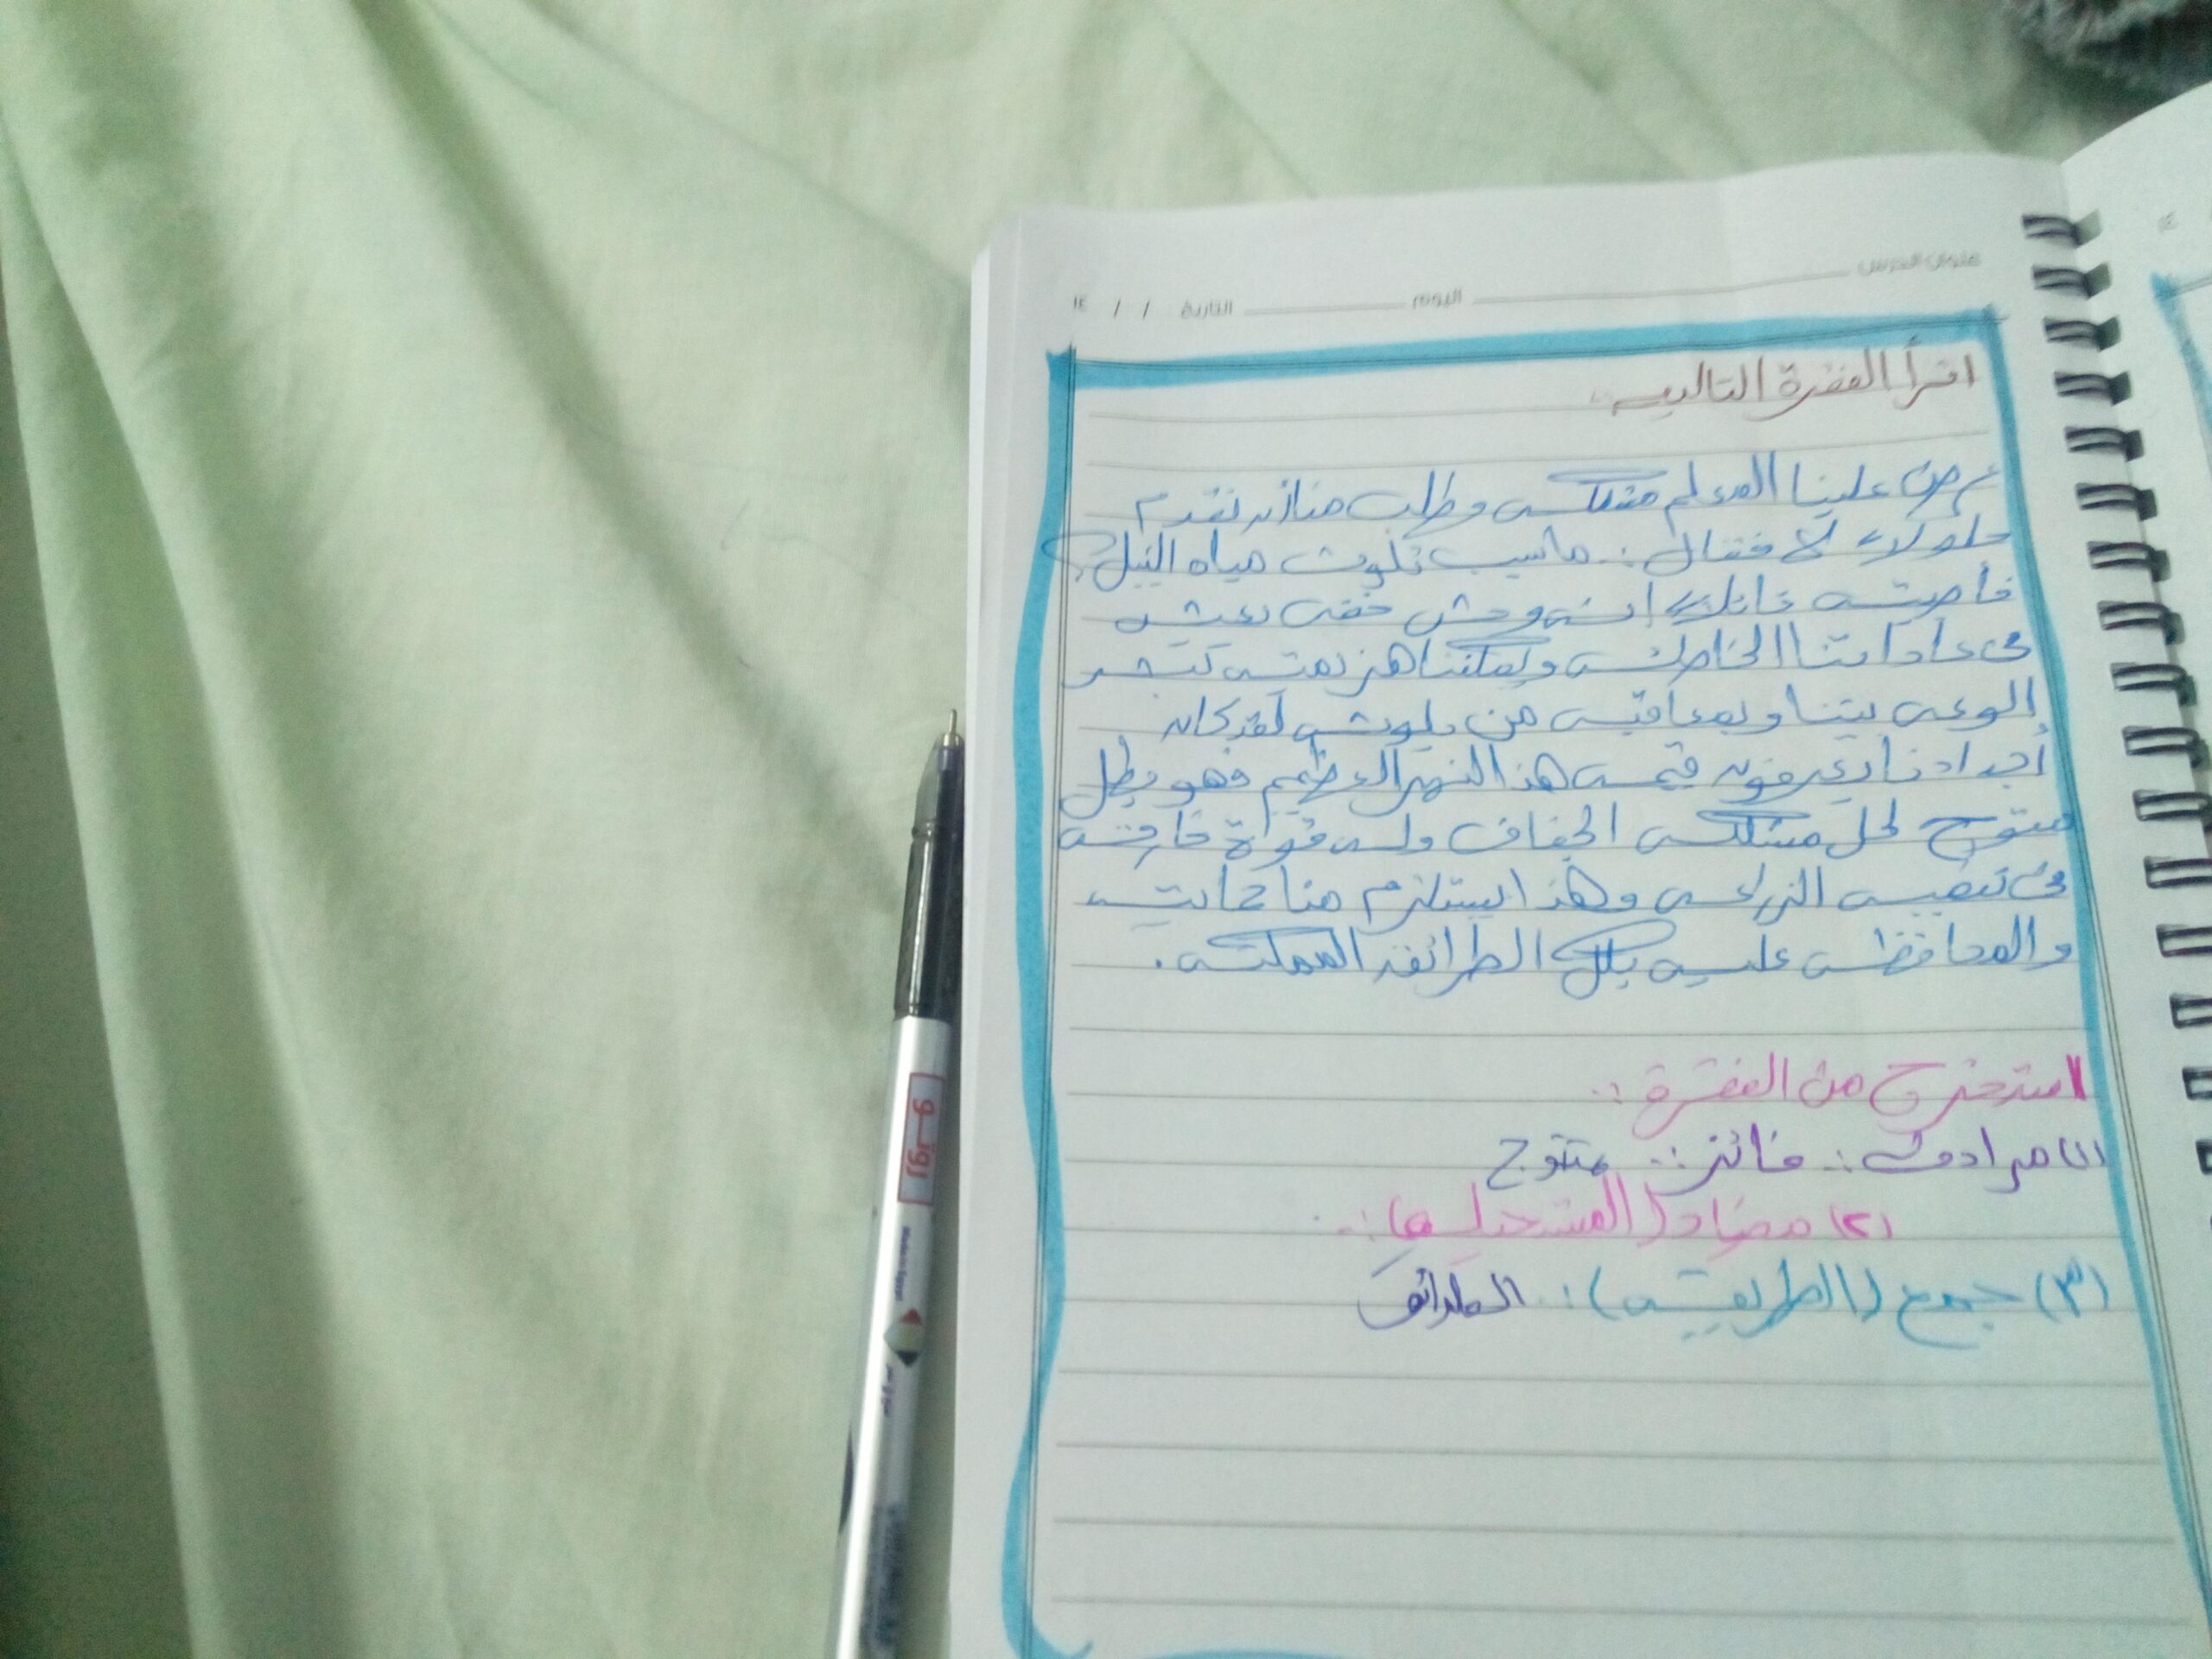 عنوان الدرس اليوم التاريخ / / ١٤
اقرأ الفقرة التاليه
عرض علينا المعلم مشكله وطلب منا أن نقدم
حلولاً لها فقال: ما سبب تلوث مياه النيل؟
فأجبته قائلاً إنه وحش خفى يعيش
فى عاداتنا الخاطئه ويمكننا هزيمته بنشر
الوعى بيننا وبمعاقبه من يلوثه لقد كان
أجدادنا يعرفون قيمه هذا النهر العظيم فهو بطل
متوج لحل مشكله الجفاف وله قوة خارقه
فى تنميه الزراعه وهذا يستلزم منا حمايته
والمحافظه عليه بكل الطرائق الممكنه.
استخرج من الفقرة :
(١) مرادف :. فائز :. متوج
(٢) مضاد (المستحيله) :.
(٣) جمع (الطريقه) :. الطرائق
روتــو